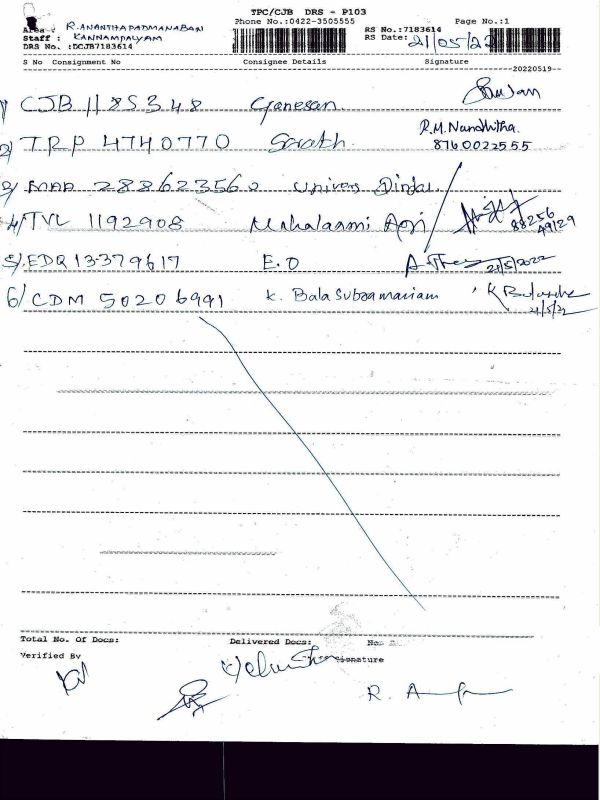 TPC/CJB DRS - P103
Area : R. ANANTHAPADMANABAN Phone No.:0422-3505555 Page No.:1
Staff : KANNAMPALYAM RS No.:7183614
DRS No. :DCJB7183614 RS Date: 21/05/22
S No Consignment No Consignee Details Signature
20220519
1) CJB 1185348 Ganesan
2) TRP 4740770 Sarath R.M. Nandhitha. 8760022555
3) 288623560 Univers
4) TVL 1192908 Mahalaxmi Agri 88256 49129
5) EDQ 13379617 E.O 21/5/2022
6) CDM 50206991 K. Bala Subramaniam 21/5/22
Total No. Of Docs: Delivered Docs:
Verified By Signature